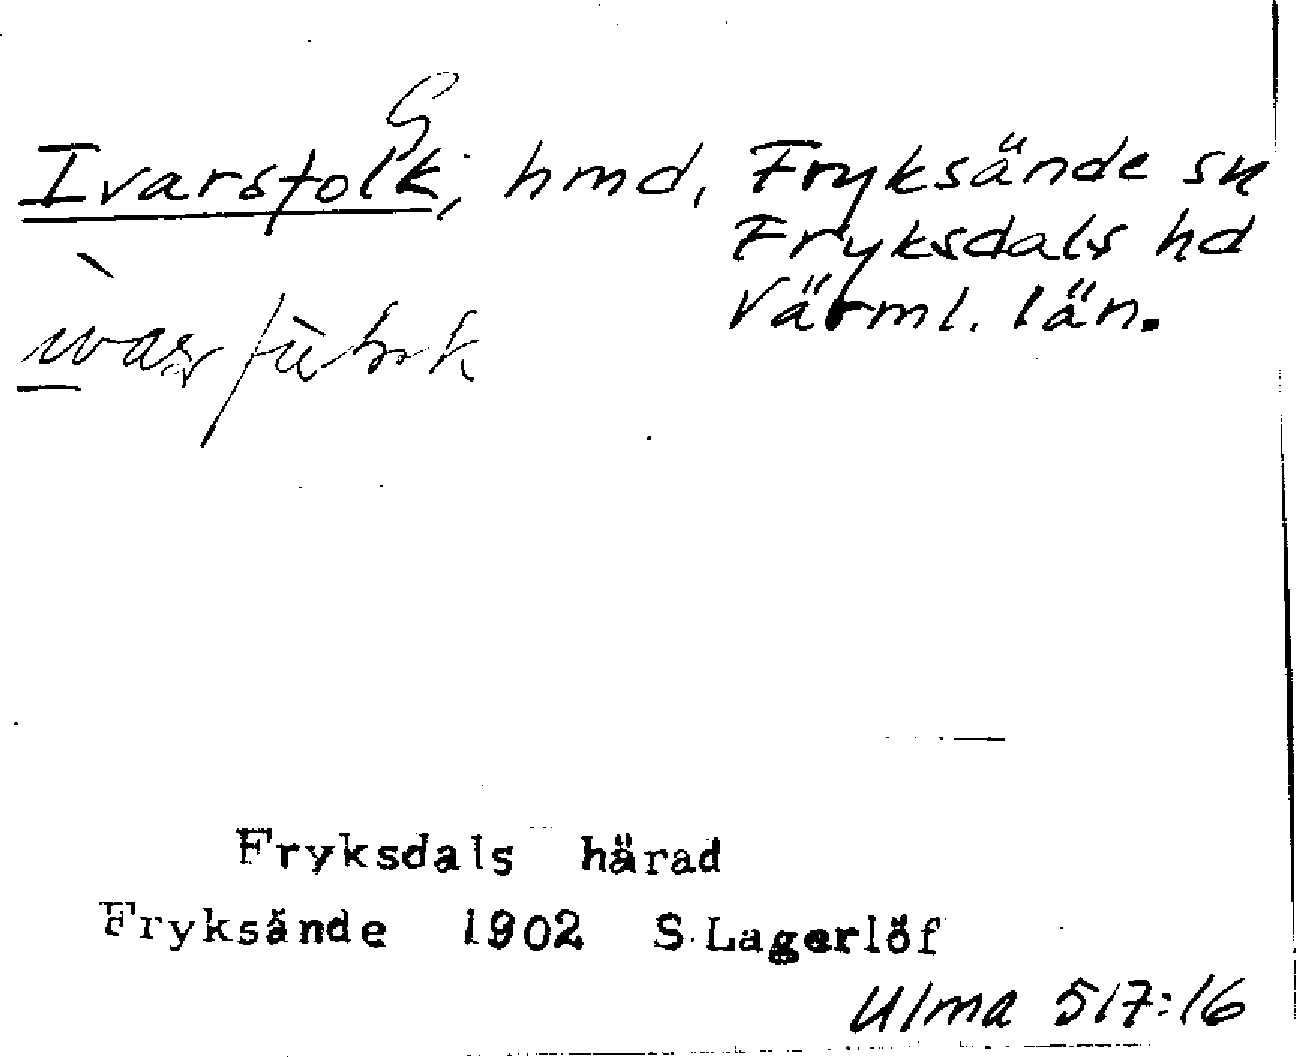 G
Ivarsfolk, hmd, Fryksände sn
Fryksdals hd
Värml. län.
Fryksdals härad
Fryksände 1902 S. Lagerlöf
Ulma 517:16